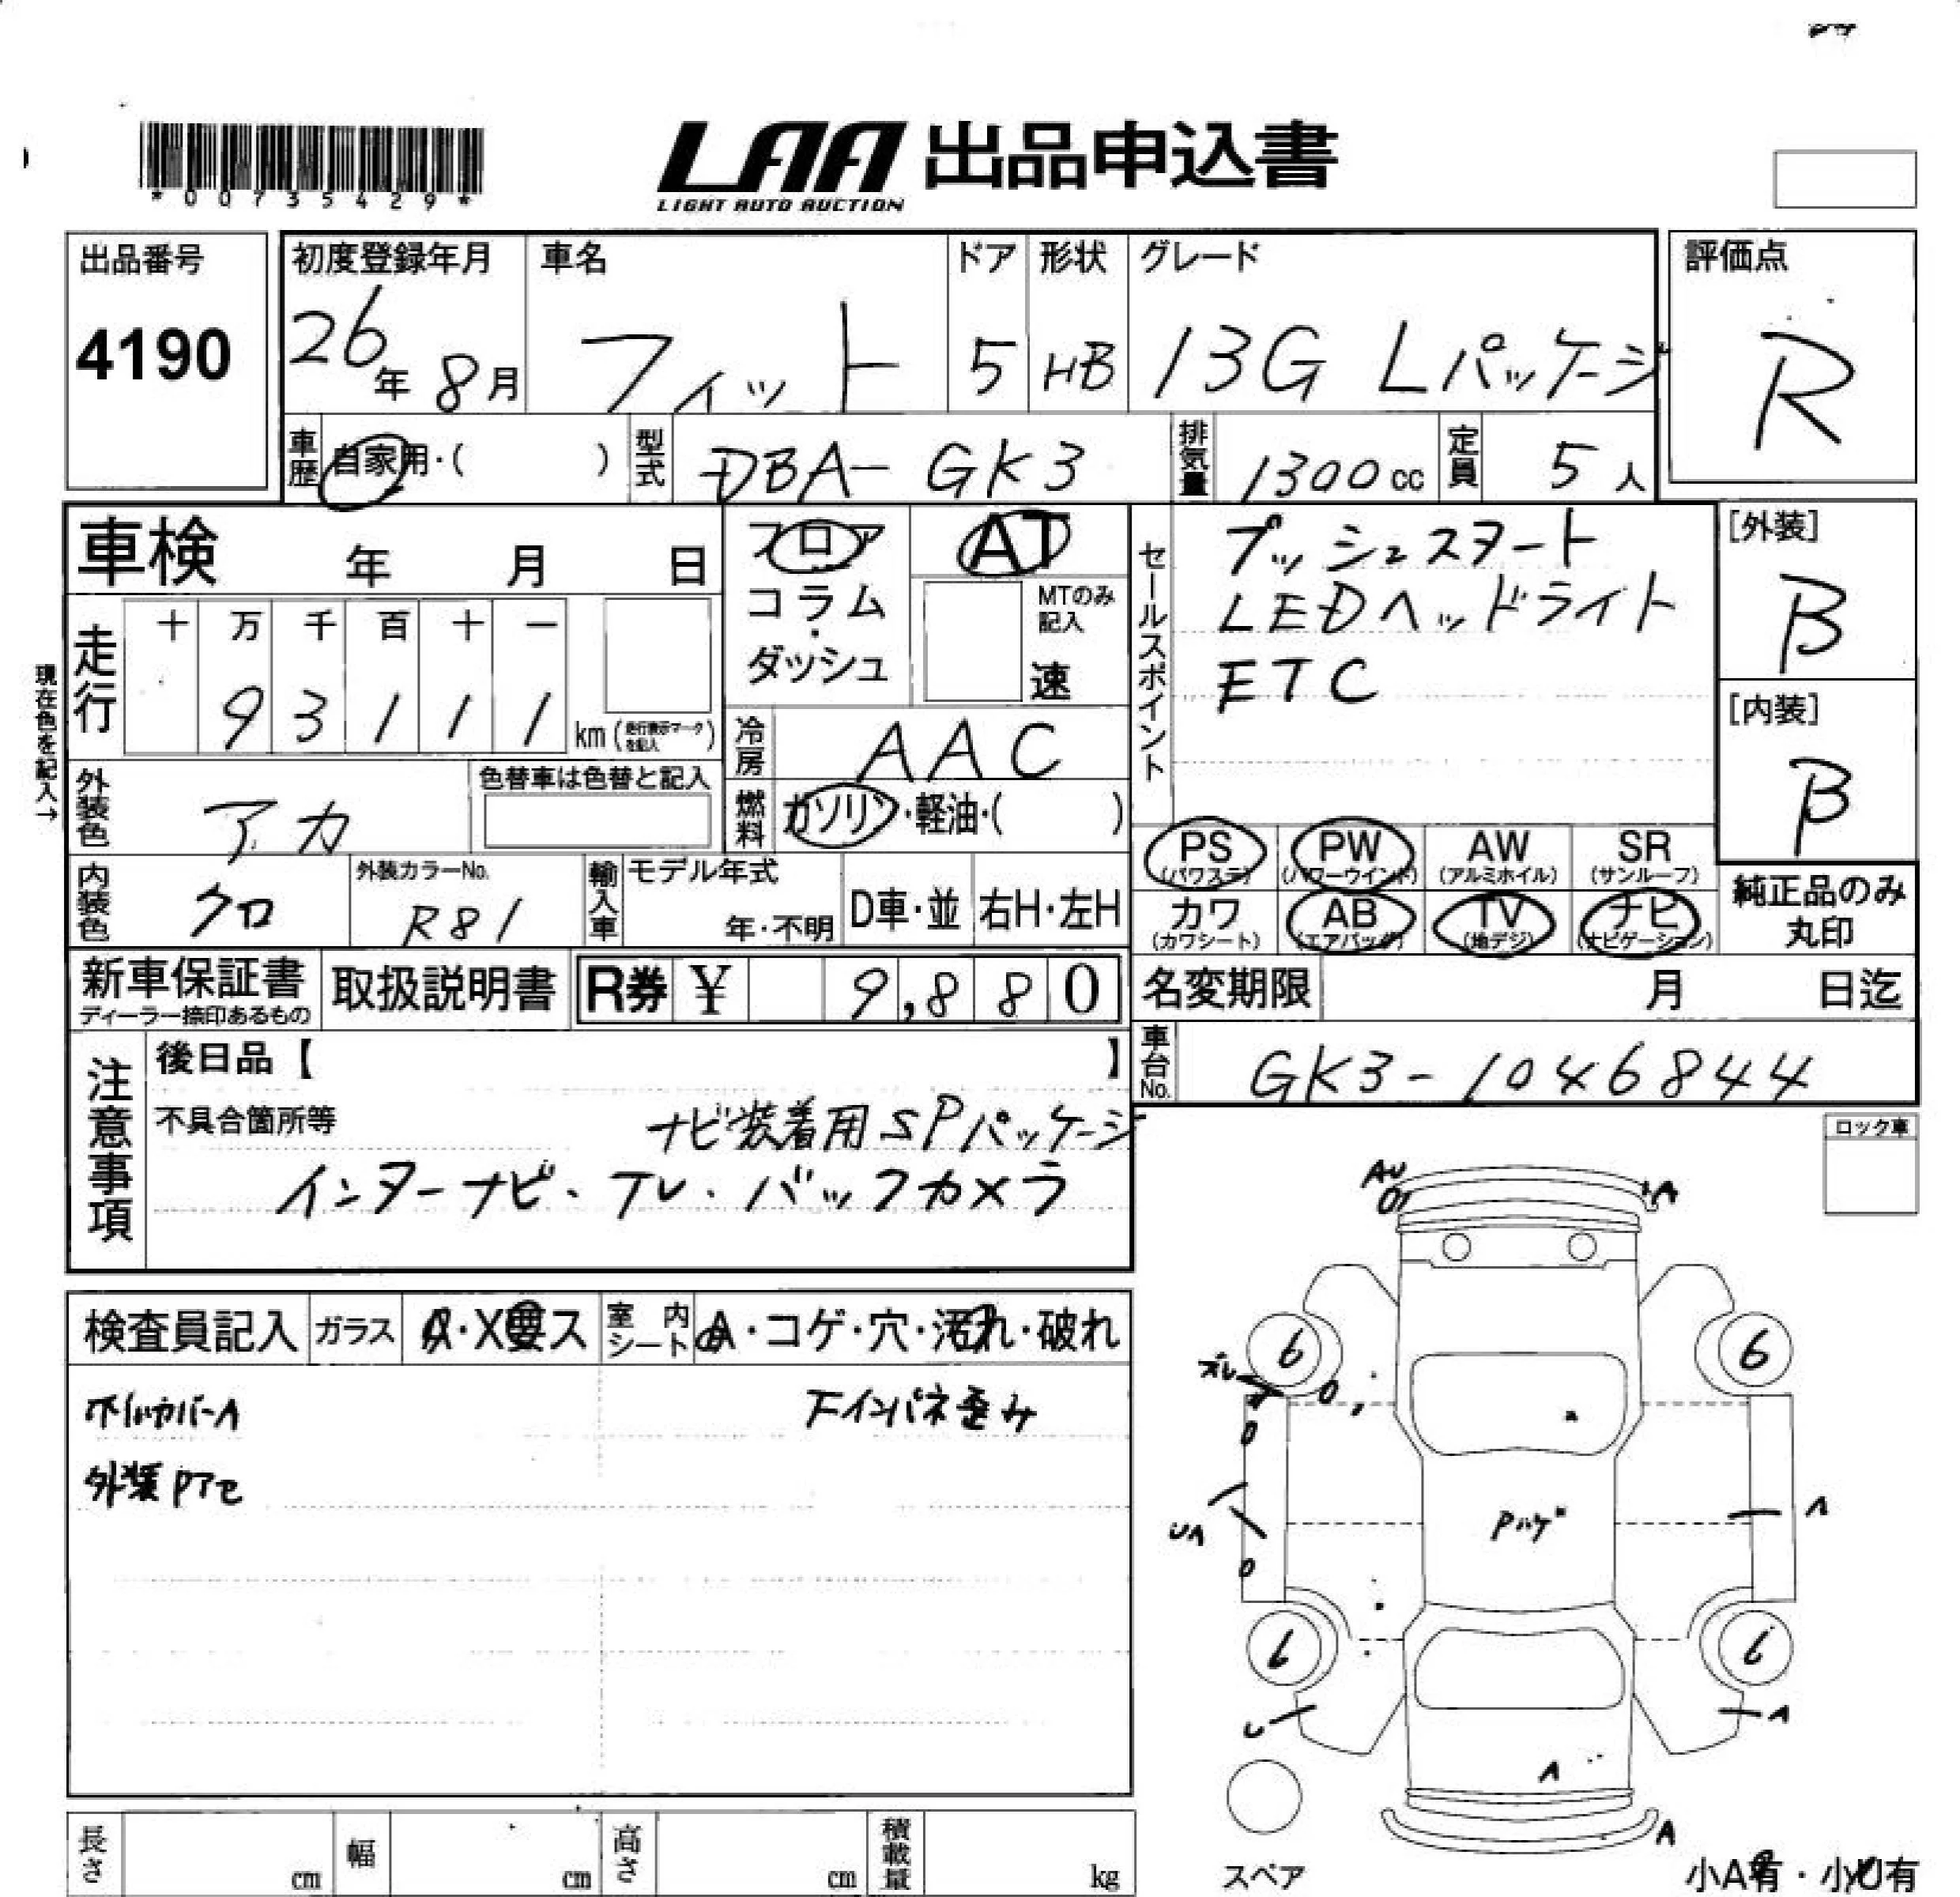 *00735429*
LAA 出品申込書
LIGHT AUTO AUCTION
出品番号
4190
初度登録年月
26年 8月
車名
フィット
ドア
5
形状
HB
グレード
13G Lパッケージ
評価点
R
車歴 自家用・( )
型式 DBA-GK3
排気量 1300cc
定員 5人
車検 年 月 日
フロア・コラム・ダッシュ
AT
MTのみ記入
速
セールスポイント
プッシュスタート
LEDヘッドライト
ETC
[外装]
B
[内装]
B
現在色を記入→
走行
十 万 千 百 十 一
9 3 1 1 1 km (走行表示マークを記入)
冷房 AAC
外装色 アカ
色替車は色替と記入
燃料 ガソリン・軽油・( )
PS (パワステ)
PW (パワーウインド)
AW (アルミホイル)
SR (サンルーフ)
カワ (カワシート)
AB (エアバッグ)
TV (地デジ)
ナビ (ナビゲーション)
純正品のみ丸印
内装色 クロ
外装カラーNo.
R81
輸入車
モデル年式
年・不明
D車・並
右H・左H
新車保証書
ディーラー捺印あるもの
取扱説明書
R券 ¥ 9,880
名変期限 月 日迄
車台No. GK3-1046844
注意事項
後日品【 】
不具合箇所等
ナビ装着用SPパッケージ
インターナビ・TV・バックカメラ
ロック車
検査員記入
ガラス
A・X要ス
室内シート
A・コゲ・穴・汚れ・破れ
ホイルカバーA
下インパネ歪み
外装Pアセ
AU
A
6
6
ズレ
UA
A
Pハゲ
6
6
U
A
A
A
スペア
小A有・小U有
長さ cm
幅 cm
高さ cm
積載量 kg